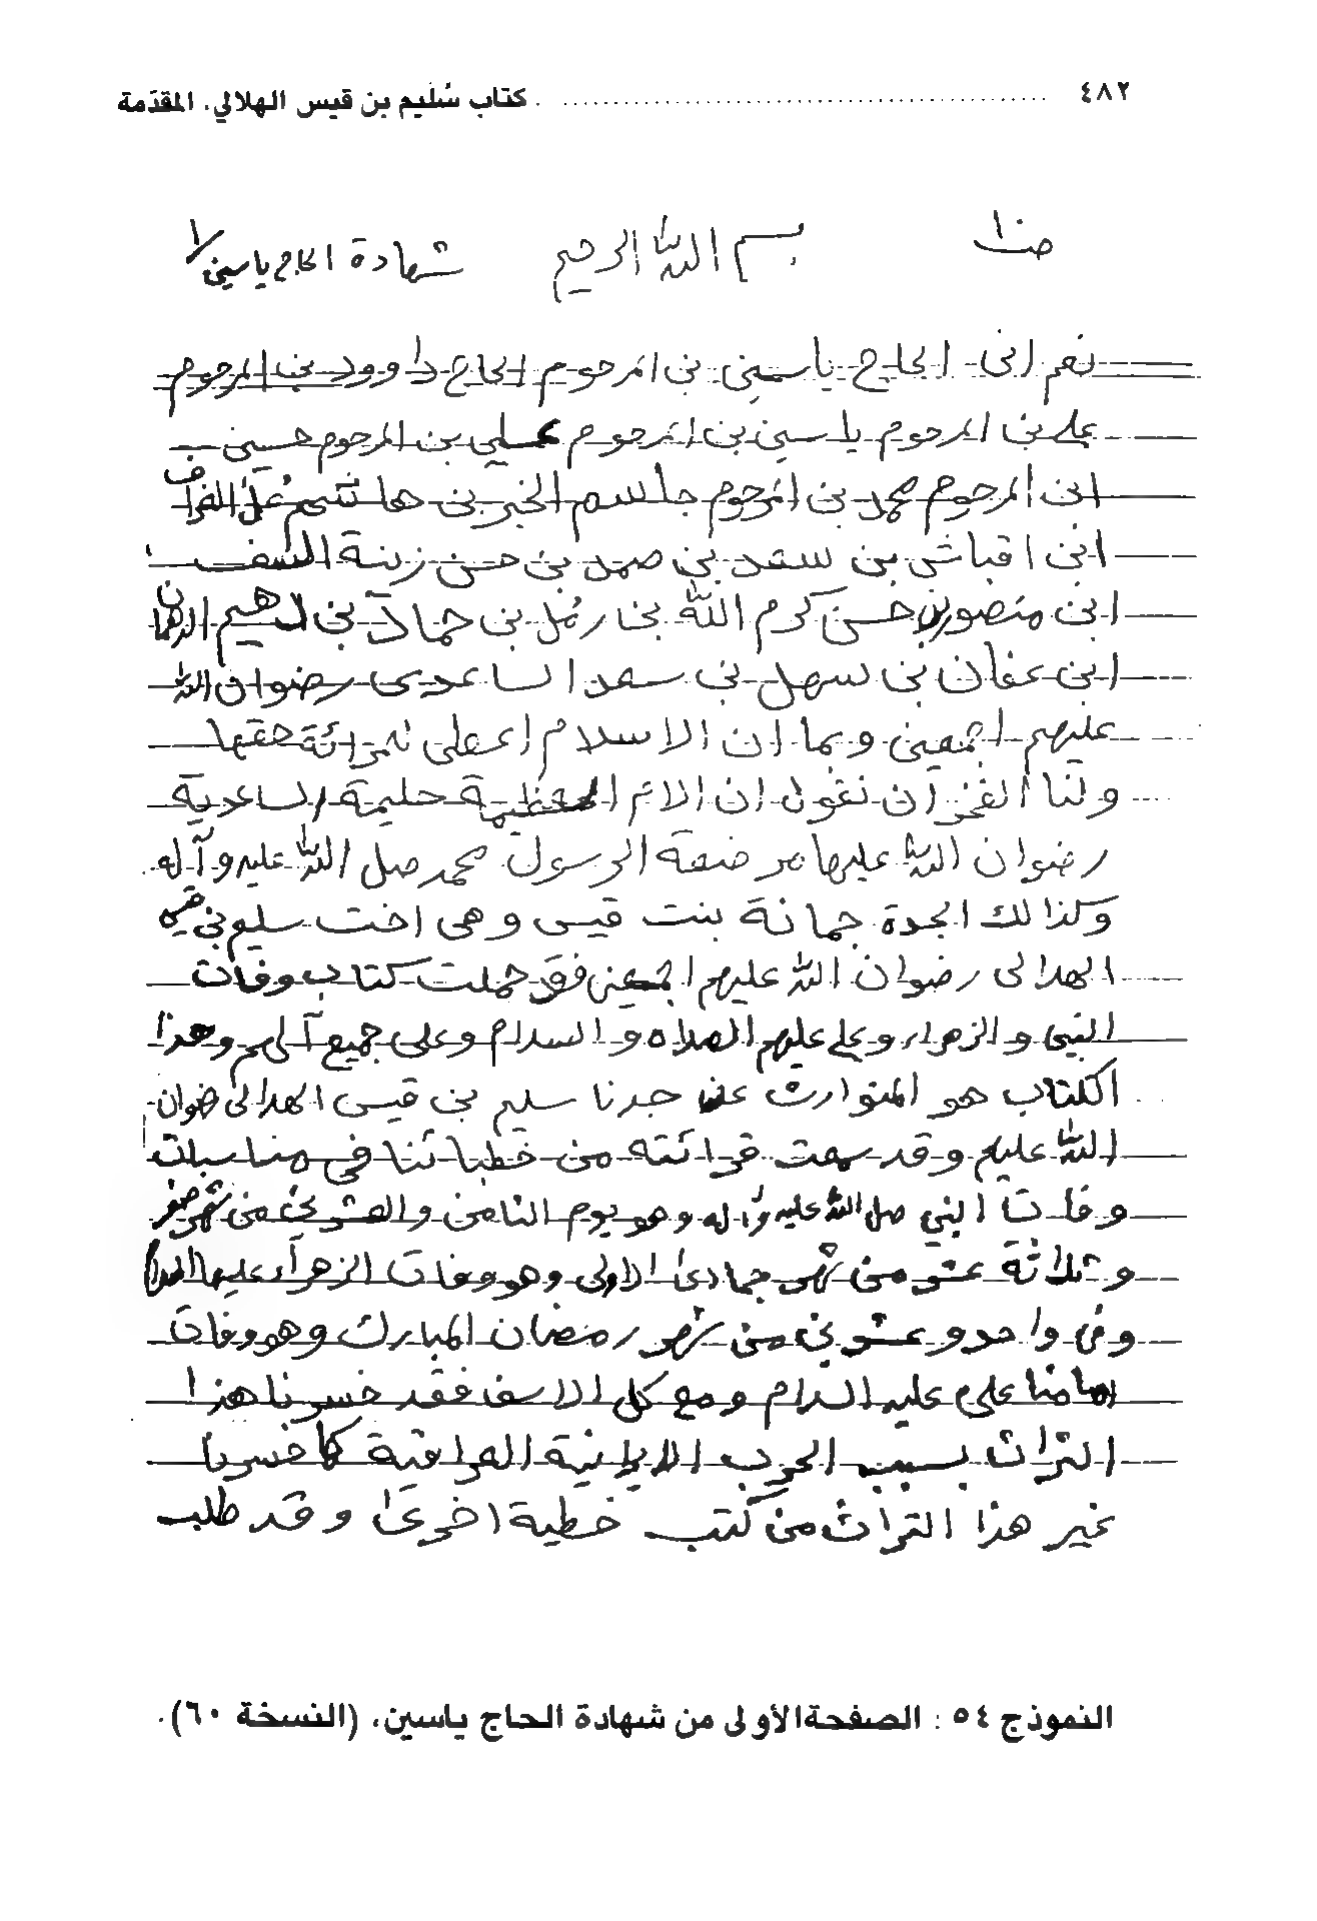 ٤٨٢ كتاب سُليم بن قيس الهلالي، المقدّمة
بسم الله الرحيم شهادة الحاج ياسين/١
نعم انى الحاج ياسين بن المرحوم الحاج داوود بن المرحوم
علي بن المرحوم ياسين بن المرحوم علي بن المرحوم حسين
ابن المرحوم محمد بن المرحوم جاسم الخير بن هاشم
ابن اقباش بن سعد بن صمد بن حسن زينة
ابن منصور بن حسن كرم الله بن حماد بن
ابن عفان بن سهل بن سعد الساعدى رضوان الله
عليهم اجمعين وبما ان الاسلام اعطى حقها
ولنا الفخر ان نقول ان الام العظيمة حليمة الساعدية
رضوان الله عليها مرضعة الرسول محمد صل الله عليه وآله
وكذالك الجدة جمانة بنت قيس وهى اخت سليم بن قيس
الهلالى رضوان الله عليهم اجمعين فقد حملت كتاب وفات
النبى والزهراء وعلي عليهم الصلاه والسلام وعلى جميع آلهم وهذا
الكتاب هو المتوارث عند جدنا سليم بن قيس الهلالى رضوان
الله عليهم وقد سمعت قرائته من خطبائنا في مناسبات
وفات النبي صل الله عليه وآله وهو يوم الثامن والعشرين من شهر صفر
وثلاثة عشر من شهر جمادى الاولى وهو وفات الزهراء عليها السلام
وفى واحد وعشرين من شهر رمضان المبارك وهو وفات
امامنا علي عليه السلام ومع كل الاسف فقد خسرنا هذا
التراث بسبب الحرب الايرانية العراقية كما خسرنا
غير هذا التراث من كتب خطية اخرى وقد طلب
النموذج ٥٤ : الصفحة الأولى من شهادة الحاج ياسين، (النسخة ٦٠).